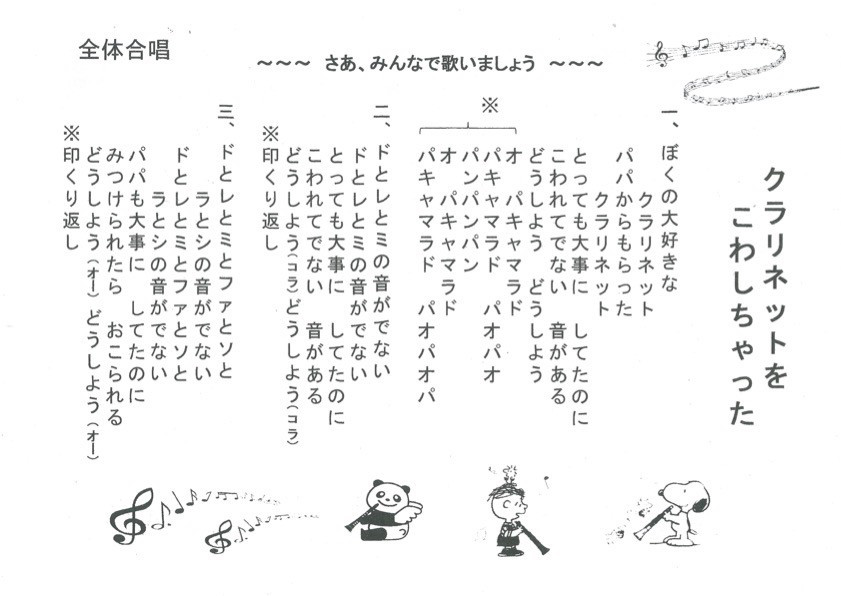 全体合唱
～～～ さあ、みんなで歌いましょう ～～～
クラリネットを
こわしちゃった
一、ぼくの大好きな
クラリネット
パパからもらった
クラリネット
とっても大事に してたのに
こわれてでない 音がある
どうしよう どうしよう
※
オ パキャマラド
パキャマラド パオパオ
パンパンパン
オ パキャマラド
パキャマラド パオパオパ
二、ドとレとミの音がでない
ドとレとミの音がでない
とっても大事に してたのに
こわれてでない 音がある
どうしよう(コラ)どうしよう(コラ)
※印くり返し
三、ドとレとミとファとソと
ラとシの音がでない
ドとレとミとファとソと
ラとシの音がでない
パパも大事に してたのに
みつけられたら おこられる
どうしよう(オー)どうしよう(オー)
※印くり返し